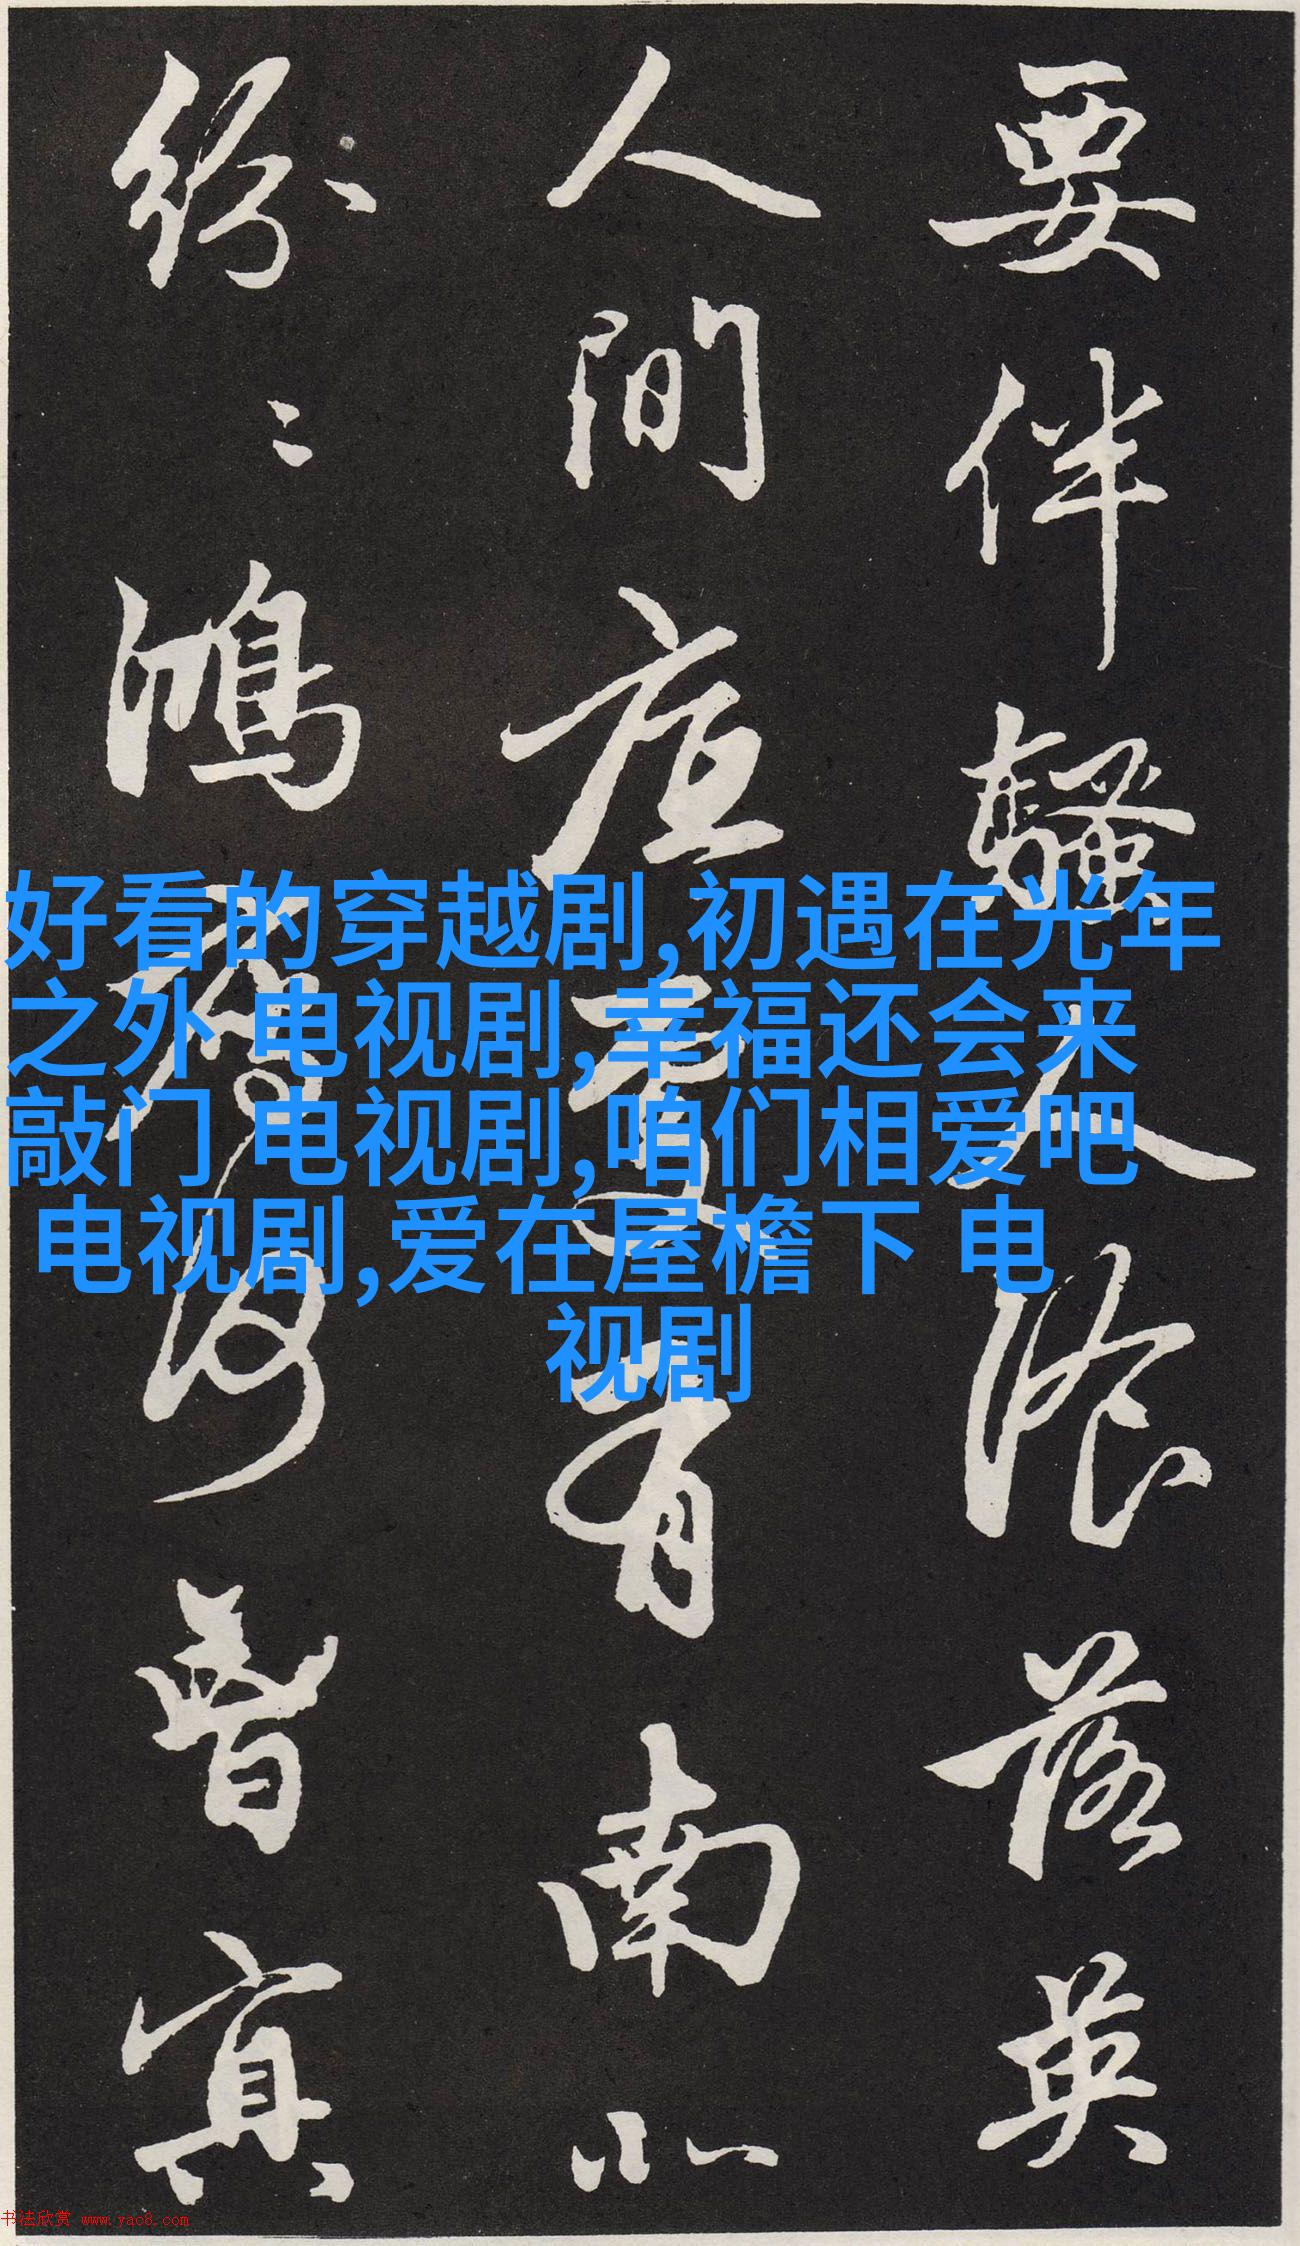 要伴騷人飡落英
人間底處有南北
紛々鴻鴈何曾冥
好看的穿越剧,初遇在光年
之外 电视剧,幸福还会来
敲门 电视剧,咱们相爱吧
电视剧,爱在屋檐下 电
视剧
书法欣赏 www.yac8.com